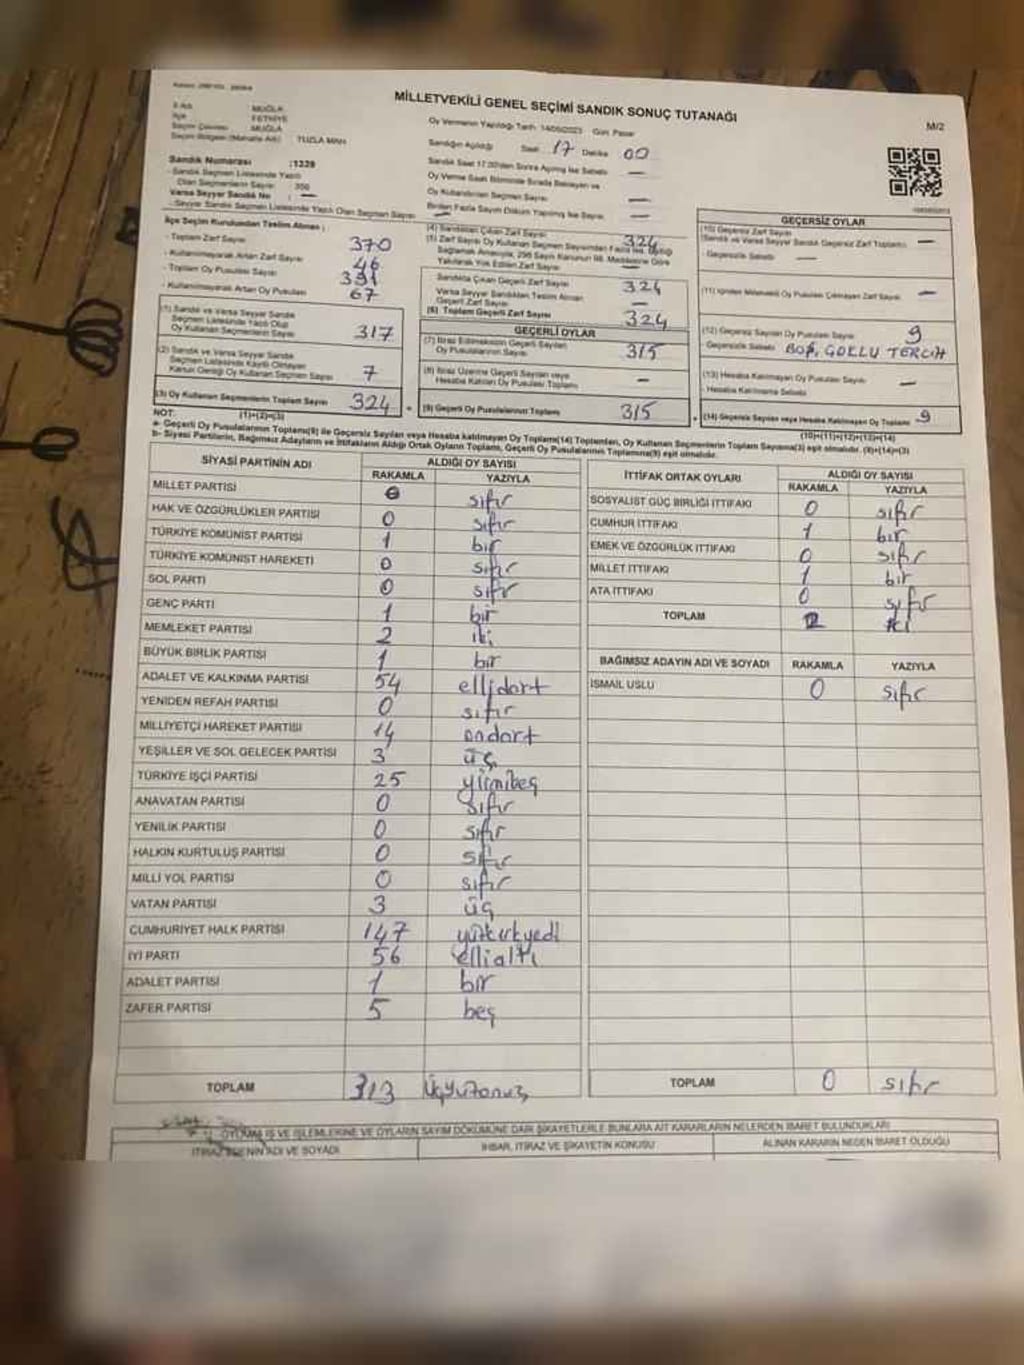 MİLLETVEKİLİ GENEL SEÇİMİ SANDIK SONUÇ TUTANAĞI
M/2
MUĞLA
FETHİYE
MUĞLA
TUZLA MAH
Oy Vermenin Yapıldığı Tarih: 14/05/2023 Gün: Pazar
Sandığın Açıldığı Saat 17 Dakika 00
Sandık Numarası :1229
İlçe Seçim Kurulundan Teslim Alınan :
- Toplam Zarf Sayısı 370
- Kullanılmayarak Artan Zarf Sayısı 46
- Toplam Oy Pusulası Sayısı 391
- Kullanılmayarak Artan Oy Pusulası 67
(1) Sandık ve Varsa Seyyar Sandık
Seçmen Listesinde Yazılı Olup
Oy Kullanan Seçmenlerin Sayısı 317
(2) Sandık ve Varsa Seyyar Sandık
Seçmen Listesinde Kayıtlı Olmayan
Kanun Gereği Oy Kullanan Seçmen Sayısı 7
(3) Oy Kullanan Seçmenlerin Toplam Sayısı 324
(1)+(2)=(3)
(4) Sandıktan Çıkan Zarf Sayısı 324
Sandıkta Çıkan Geçerli Zarf Sayısı 324
Varsa Seyyar Sandıktan Teslim Alınan
Geçerli Zarf Sayısı —
(6) Toplam Geçerli Zarf Sayısı 324
GEÇERLİ OYLAR
(7) İtiraz Edilmeksizin Geçerli Sayılan
Oy Pusulalarının Sayısı 315
(8) İtiraz Üzerine Geçerli Sayılan veya
Hesaba Katılan Oy Pusulası Toplamı —
(9) Geçerli Oy Pusulalarının Toplamı 315
GEÇERSİZ OYLAR
(10) Geçersiz Zarf Sayısı
(Sandık ve Varsa Seyyar Sandık Geçersiz Zarf Toplamı) —
- Geçersizlik Sebebi —
(12) Geçersiz Sayılan Oy Pusulası Sayısı 9
- Geçersizlik Sebebi BOŞ, ÇOKLU TERCİH
(13) Hesaba Katılmayan Oy Pusulası Sayısı —
- Hesaba Katılmama Sebebi
(14) Geçersiz Sayılan veya Hesaba Katılmayan Oy Toplamı 9
(10)+(11)+(12)+(13)=(14)
NOT:
a- Geçerli Oy Pusulalarının Toplamı(9) ile Geçersiz Sayılan veya Hesaba katılmayan Oy Toplamı(14) Toplamları, Oy Kullanan Seçmenlerin Toplam Sayısına(3) eşit olmalıdır. (9)+(14)=(3)
b- Siyasi Partilerin, Bağımsız Adayların ve İttifakların Aldığı Ortak Oyların Toplamı, Geçerli Oy Pusulalarının Toplamına(9) eşit olmalıdır.
SİYASİ PARTİNİN ADI ALDIĞI OY SAYISI
RAKAMLA YAZIYLA
MİLLET PARTİSİ 0 sıfır
HAK VE ÖZGÜRLÜKLER PARTİSİ 0 sıfır
TÜRKİYE KOMÜNİST PARTİSİ 1 bir
TÜRKİYE KOMÜNİST HAREKETİ 0 sıfır
SOL PARTİ 0 sıfır
GENÇ PARTİ 1 bir
MEMLEKET PARTİSİ 2 iki
BÜYÜK BİRLİK PARTİSİ 1 bir
ADALET VE KALKINMA PARTİSİ 54 ellidört
YENİDEN REFAH PARTİSİ 0 sıfır
MİLLİYETÇİ HAREKET PARTİSİ 14 ondört
YEŞİLLER VE SOL GELECEK PARTİSİ 3 üç
TÜRKİYE İŞÇİ PARTİSİ 25 yirmibeş
ANAVATAN PARTİSİ 0 sıfır
YENİLİK PARTİSİ 0 sıfır
HALKIN KURTULUŞ PARTİSİ 0 sıfır
MİLLİ YOL PARTİSİ 0 sıfır
VATAN PARTİSİ 3 üç
CUMHURİYET HALK PARTİSİ 147 yüzkırkyedi
İYİ PARTİ 56 ellialtı
ADALET PARTİSİ 1 bir
ZAFER PARTİSİ 5 beş
TOPLAM 313
İTTİFAK ORTAK OYLARI ALDIĞI OY SAYISI
RAKAMLA YAZIYLA
SOSYALİST GÜÇ BİRLİĞİ İTTİFAKI 0 sıfır
CUMHUR İTTİFAKI 1 bir
EMEK VE ÖZGÜRLÜK İTTİFAKI 0 sıfır
MİLLET İTTİFAKI 1 bir
ATA İTTİFAKI 0 sıfır
TOPLAM 2 iki
BAĞIMSIZ ADAYIN ADI VE SOYADI RAKAMLA YAZIYLA
İSMAİL USLU 0 sıfır
TOPLAM 0 sıfır
OYLAMA İŞ VE İŞLEMLERİNE VE OYLARIN SAYIM DÖKÜMÜNE DAİR ŞİKAYETLERLE BUNLARA AİT KARARLARIN NELERDEN İBARET BULUNDUKLARI
İTİRAZ EDENİN ADI VE SOYADI İHBAR, İTİRAZ VE ŞİKAYETİN KONUSU ALINAN KARARIN NEDEN İBARET OLDUĞU